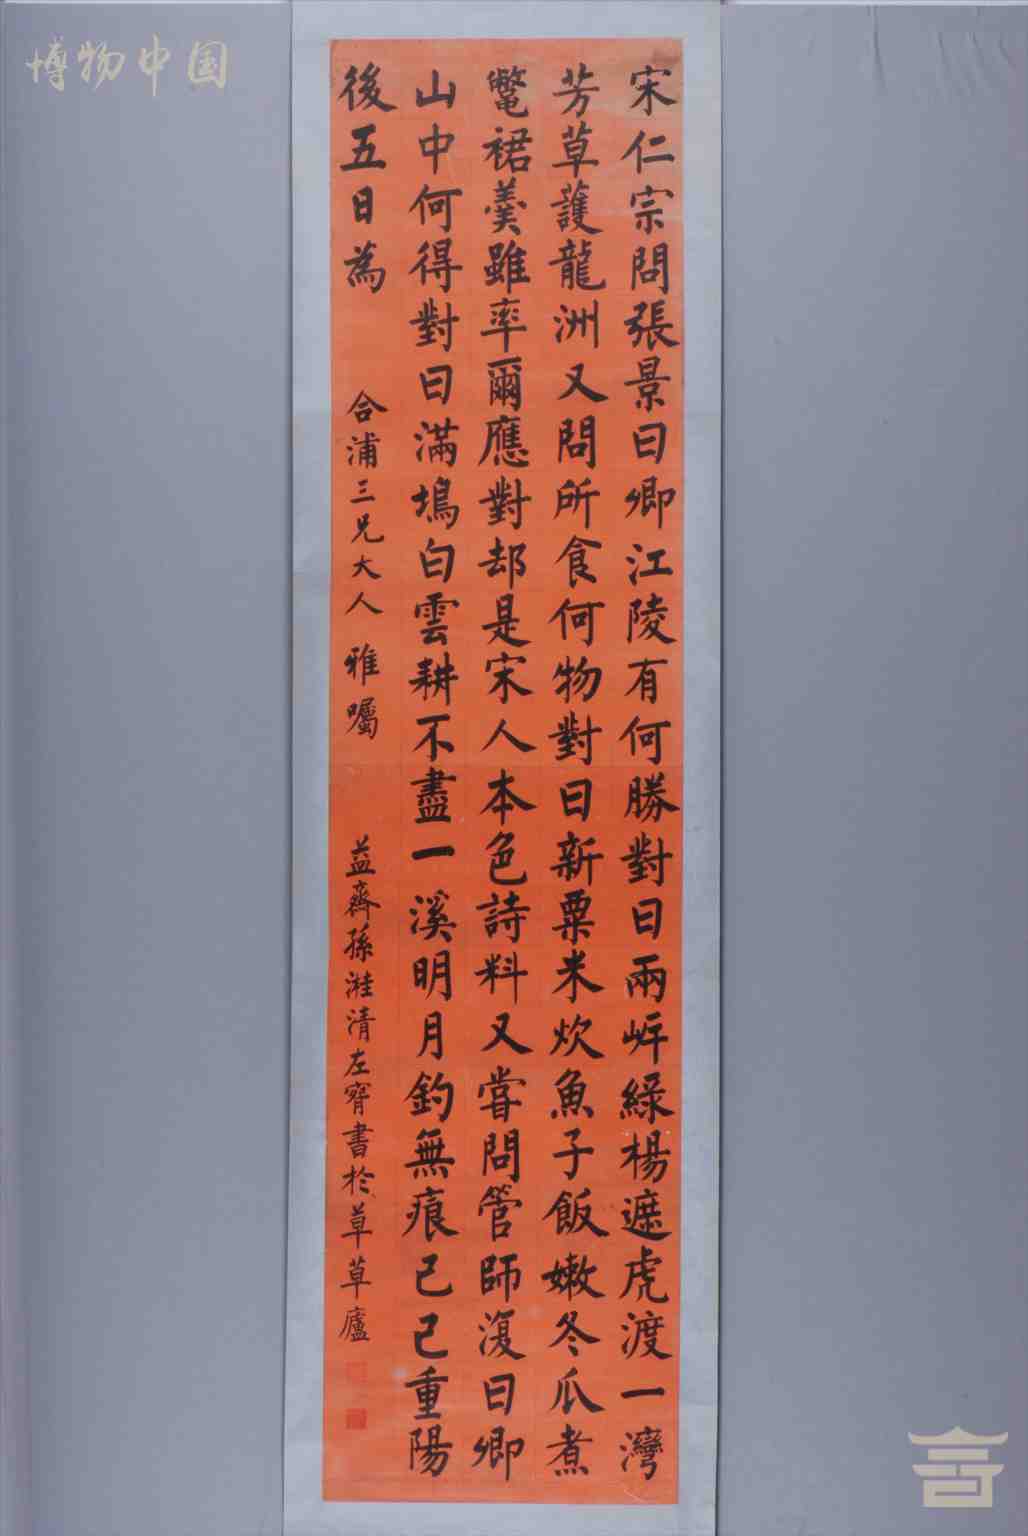 宋仁宗問張景曰卿江陵有何勝對曰兩岸綠楊遮虎渡一灣
芳草護龍洲又問所食何物對曰新粟米炊魚子飯嫩冬瓜煮
鼈裙羹雖率爾應對却是宋人本色詩料又嘗問管師復曰卿
山中何得對曰滿塢白雲耕不盡一溪明月釣無痕己巳重陽
後五日為
合浦三兄大人 雅囑
益齋孫溎清左甯書於草草廬
博物中国